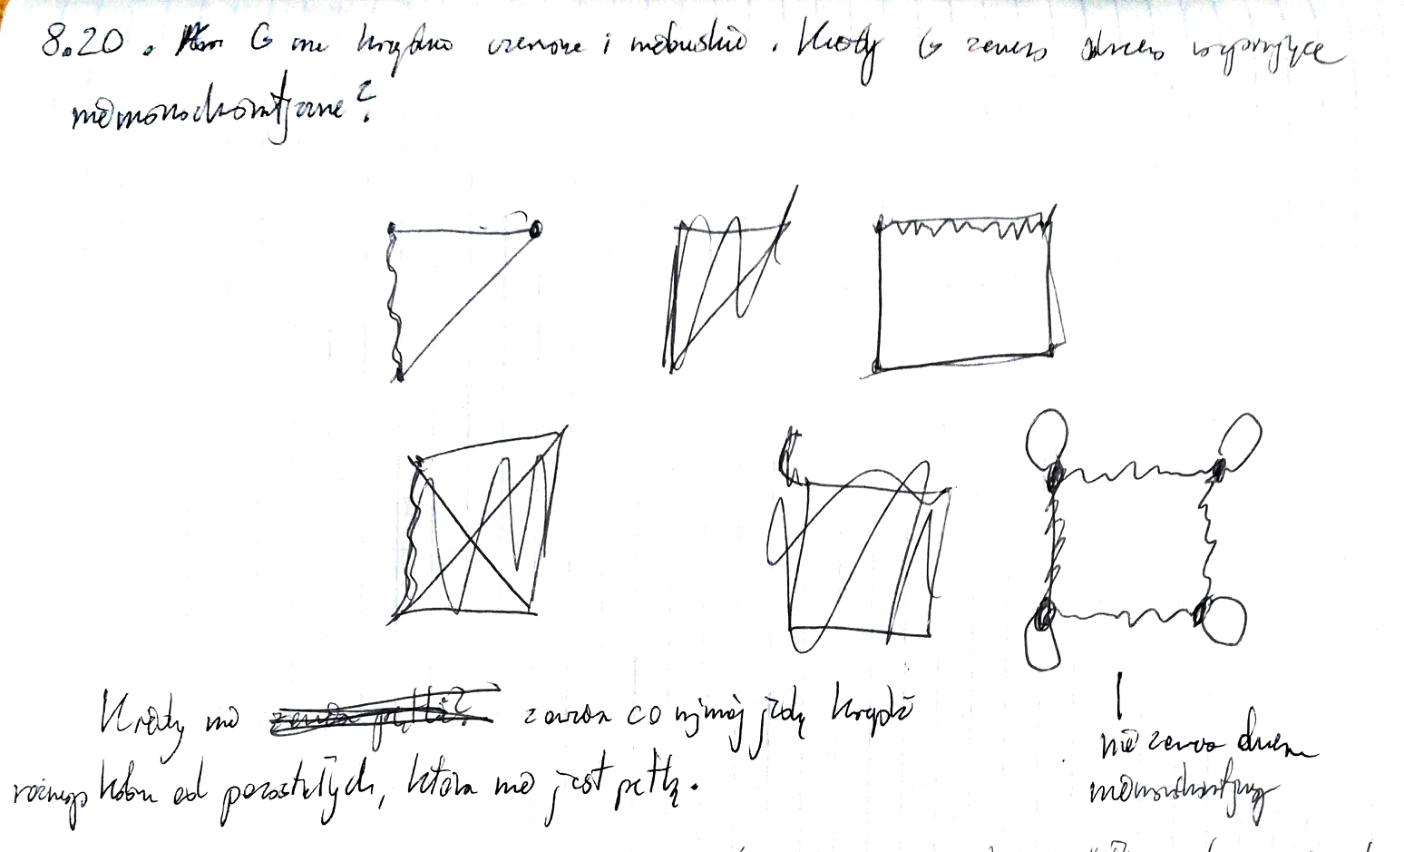 8.20. G ma krawędzie czerwone i niebieskie. Kiedy G zawiera drzewo rozpinające
niemonochromatyczne?
Kiedy nie zawiera co najmniej jedną krawędź
różnego koloru od pozostałych, która nie jest pętlą.
nie zawiera drzewa
niemonochromatycznego